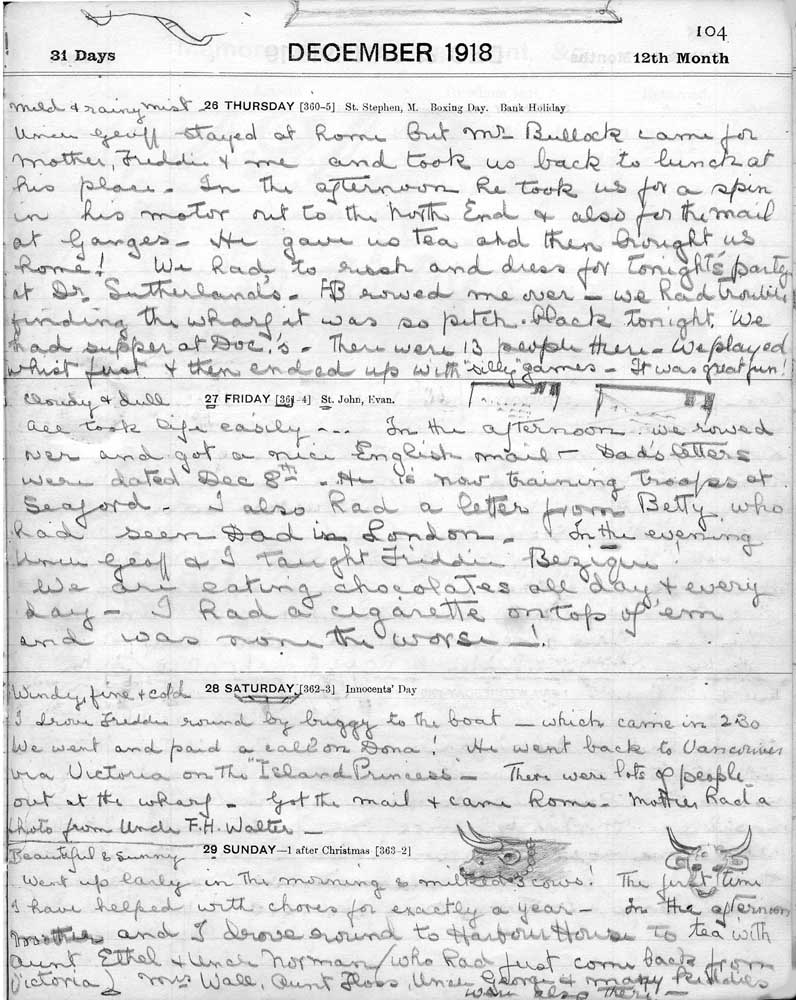 104
31 Days DECEMBER 1918 12th Month
mild & rainy mist 26 THURSDAY [360-5] St. Stephen, M. Boxing Day. Bank Holiday
Uncle Geoff stayed at home but Mr Bullock came for
Mother, Freddie & me and took us back to lunch at
his place. In the afternoon he took us for a spin
in his motor out to the North End & also for the mail
at Ganges – He gave us tea and then brought us
home! We had to rush and dress for tonight's party
at Dr. Sutherland's – FB rowed me over – we had trouble
finding the wharf it was so pitch-black tonight. We
had supper at Doc.'s – There were 13 people there – We played
whist first & then ended up with "silly" games – It was great fun!
Cloudy & dull 27 FRIDAY [361-4] St. John, Evan.
All took life easily – .. In the afternoon we rowed
over and got a nice English mail – Dad's letters
were dated Dec 8th. He is now training troops at
Seaford. I also had a letter from Betty who
had seen Dad in London. In the evening
Uncle Geoff & I taught Freddie Bezique!
We are eating chocolates all day & every
day – I had a cigarette on top of 'em
and was none the worse –!
Windy, fine & cold 28 SATURDAY [362-3] Innocents' Day
I drove Freddie round by buggy to the boat – which came in 2.30
We went and paid a call on Dona! He went back to Vancouver
via Victoria on the "Island Princess" – There were lots of people
out at the wharf – Got the mail & came home – Mother had a
photo from Uncle F.H. Walter –
Beautiful & sunny 29 SUNDAY—1 after Christmas [363-2]
Went up early in the morning & milked 3 cows! The first time
I have helped with chores for exactly a year – In the afternoon
Mother and I drove round to Harbour House to tea with
Aunt Ethel & Uncle Norman (who had just come back from
Victoria) Mrs Wall, Aunt Floss, Uncle George & many kiddies
were also there! –